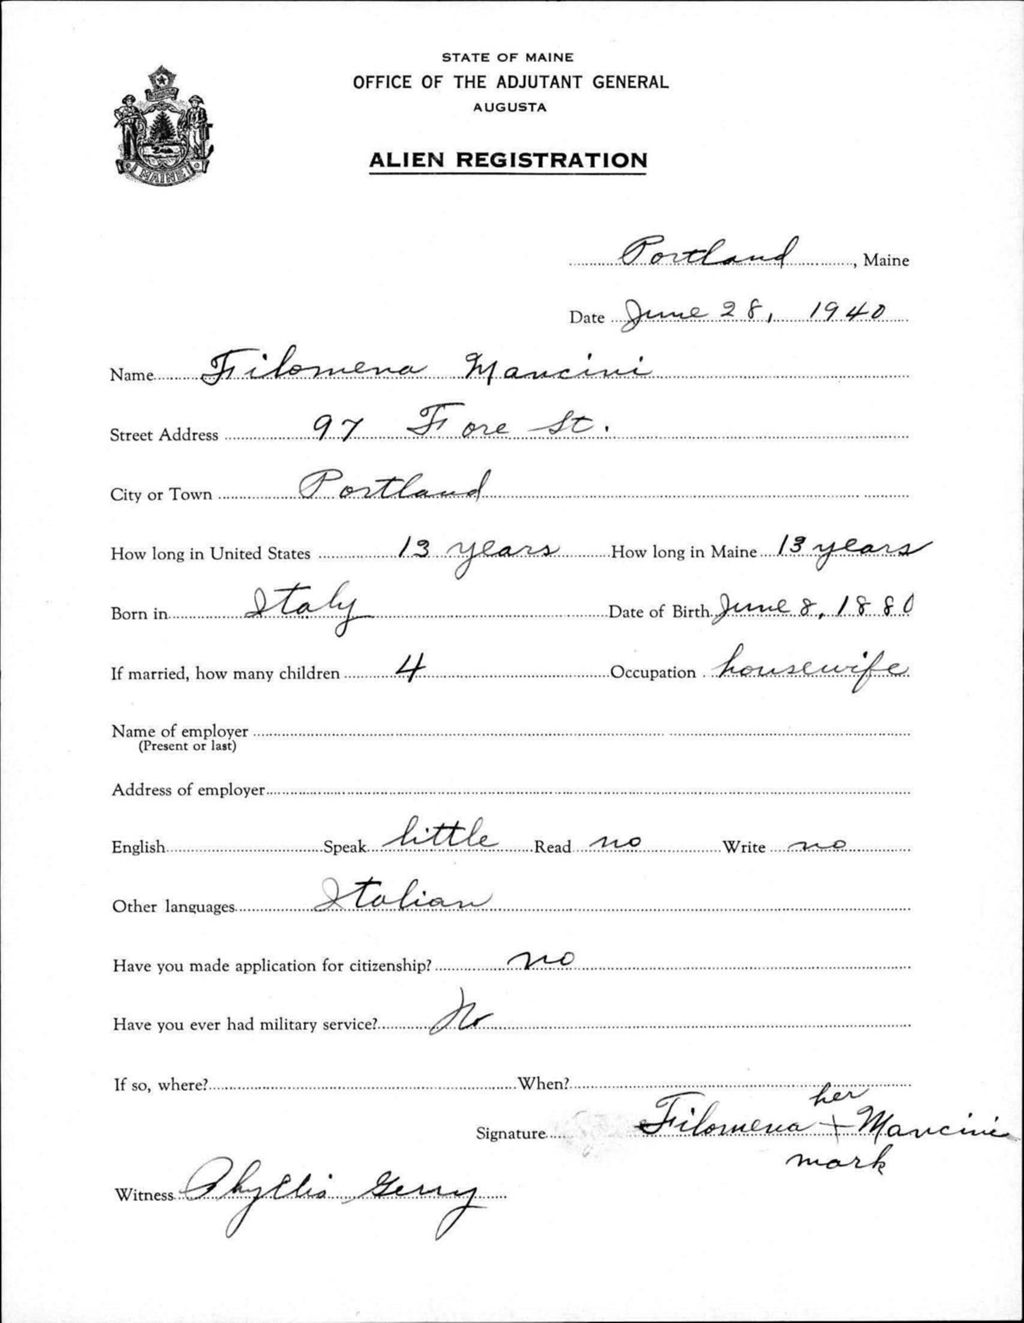 STATE OF MAINE
OFFICE OF THE ADJUTANT GENERAL
AUGUSTA
ALIEN REGISTRATION
MAINE
Portland, Maine
Date June 28, 1940
Name Filomena Mancini
Street Address 97 Fore St.
City or Town Portland
How long in United States 13 years How long in Maine 13 years
Born in Italy Date of Birth June 8, 1880
If married, how many children 4 Occupation housewife
Name of employer
(Present or last)
Address of employer
English Speak little Read no Write no
Other languages Italian
Have you made application for citizenship? no
Have you ever had military service? No
If so, where? When?
her
Signature Filomena + Mancini
mark
Witness Phyllis Gerry